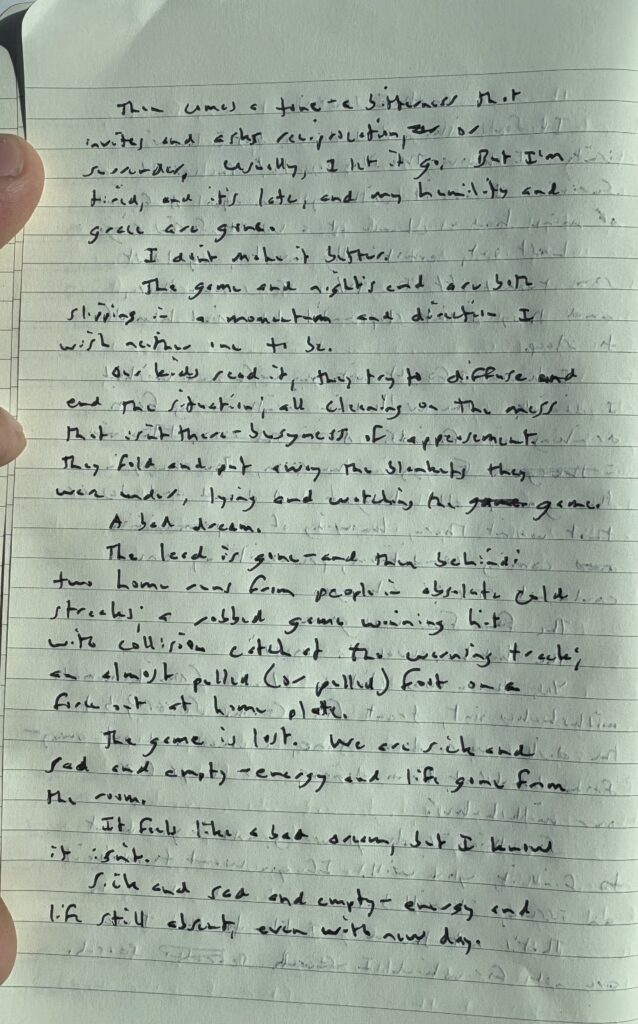 Then comes a tone - a bitterness that
invites and asks reciprocation, or
surrender, usually, I let it go. But I'm
tired, and it's late, and my humility and
grace are gone.
I don't make it better.
The game and night's end are both
slipping in a momentum and direction I
wish neither one to be.
Our kids read it, they try to diffuse and
end the situation; all cleaning on the mess
that isn't there - busyness of appeasement.
They fold and put away the blankets they
were under, lying and watching the game game.
A bad dream.
The lead is gone - and then behind:
two home runs from people in absolute cold
streaks; a robbed game winning hit
with collision catch at the warning track;
an almost pulled (or pulled) foot on a
force out at home plate.
The game is lost. We are sick and
sad and empty - energy and life gone from
the room.
It feels like a bad dream, but I know
it isn't.
Sick and sad and empty - energy and
life still absent, even with new day.